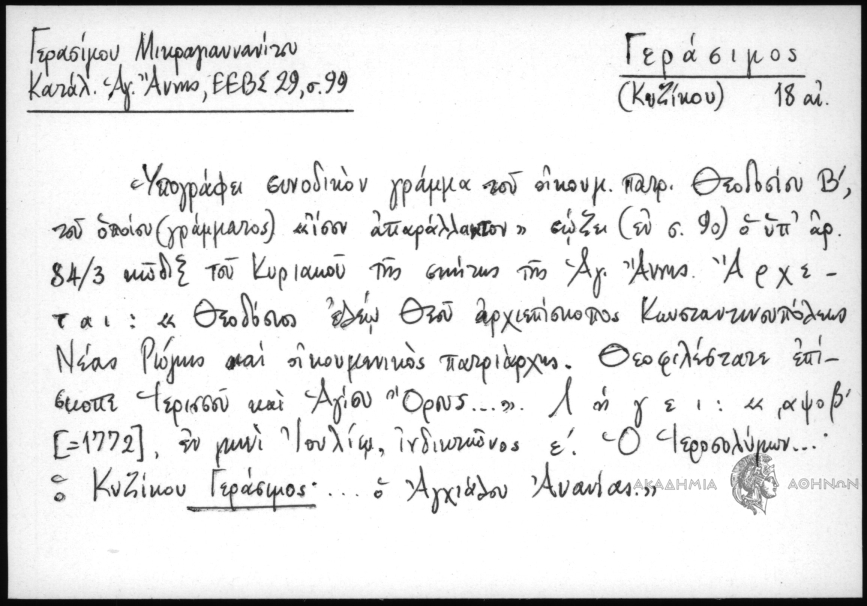 Γερασίμου Μικραγιαννανίτου
Κατάλ. Ἁγ. Ἄννης, ΕΕΒΣ 29, σ. 99
Γεράσιμος
(Κυζίκου) 18 αἰ.
Ὑπογράφει συνοδικὸν γράμμα τοῦ οἰκουμ. πατρ. Θεοδοσίου Β',
τοῦ ὁποίου (γράμματος) «ἴσον ἀπαράλλακτον» σῴζει (ἐν σ. 90) ὁ ὑπ' ἀρ.
84/3 κῶδιξ τοῦ Κυριακοῦ τῆς σκήτης τῆς Ἁγ. Ἄννης. Ἄρχε-
ται: « Θεοδόσιος ἐλέῳ Θεοῦ ἀρχιεπίσκοπος Κωνσταντινουπόλεως
Νέας Ῥώμης καὶ οἰκουμενικὸς πατριάρχης. Θεοφιλέστατε ἐπί-
σκοπε Ἱερισσοῦ καὶ Ἁγίου Ὄρους...». Λήγει: « ,αψοβ'
[=1772], ἐν μηνὶ Ἰουλίῳ, ἰνδικτιῶνος ε'. Ὁ Ἱεροσολύμων...·
ὁ Κυζίκου Γεράσιμος· ... ὁ Ἀγχιάλου Ἀνανίας.»
ΑΚΑΔΗΜΙΑ ΑΘΗΝΩΝ